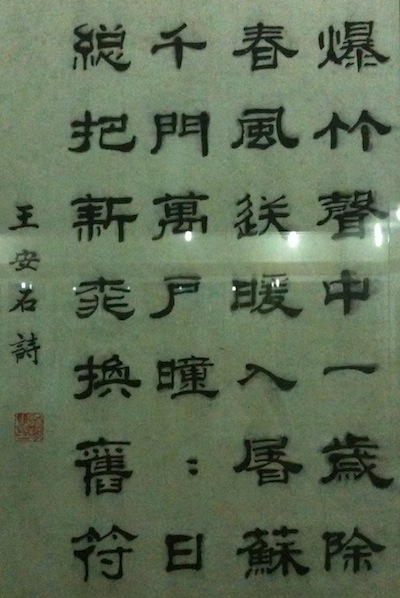 爆竹聲中一歲除
春風送暖入屠蘇
千門萬戶曈〻日
總把新桃換舊符
王安石詩